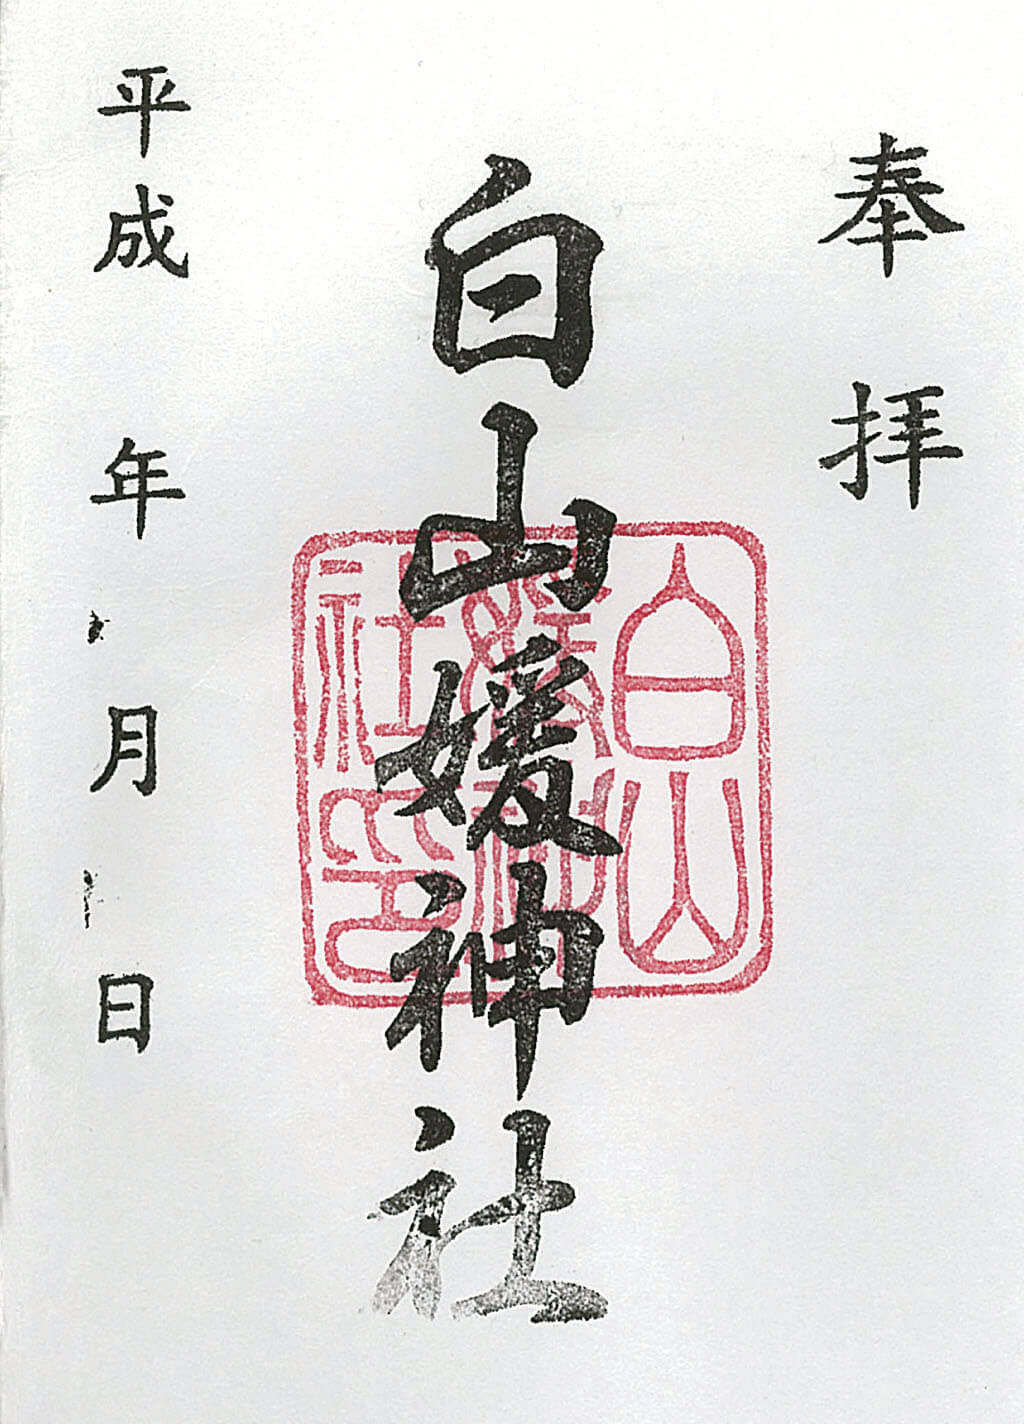 奉拝
白山媛神社
白山媛神社印
平成 年 月 日